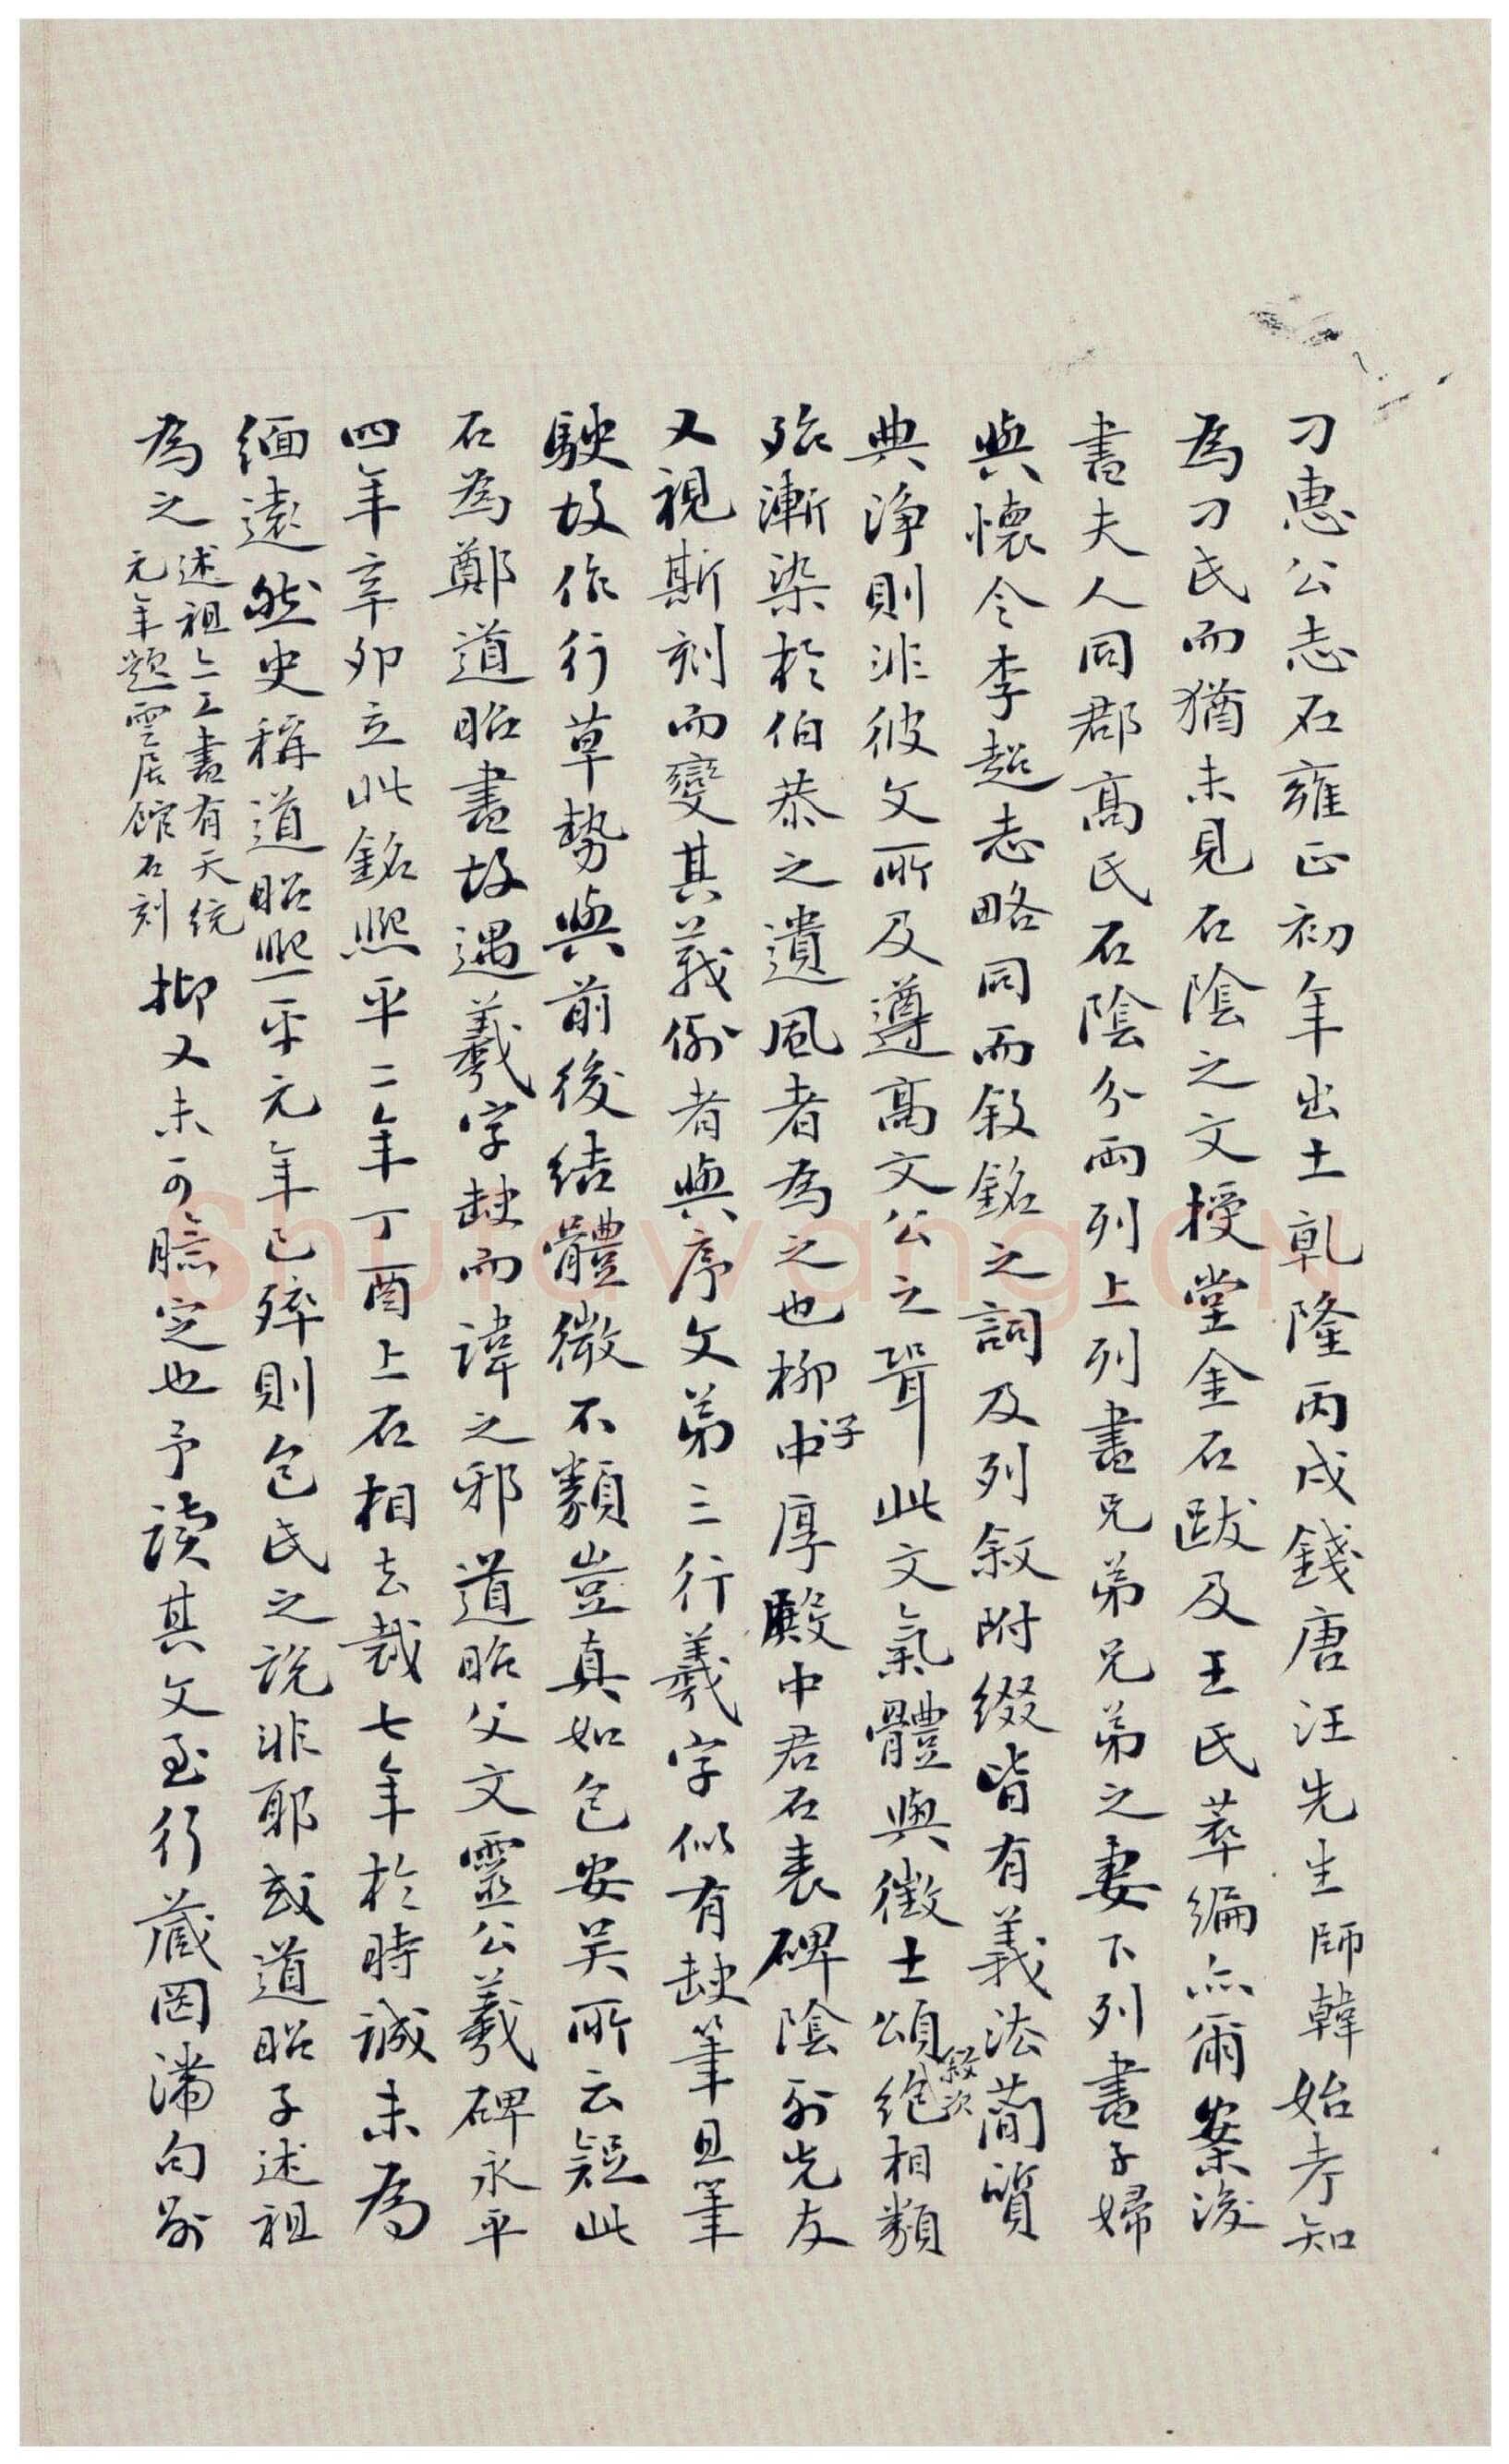 刁惠公志石雍正初年出土乹隆丙戌錢唐汪先生師韓始考知
為刁氏而猶未見石陰之文授堂金石跋及王氏萃編亦爾案後
書夫人同郡高氏石陰分兩列上列書兄弟兄弟之妻下列書子婦
與懷令李超志略同而敘銘之詞及列敘附綴皆有義法敘次蕳質
典淨則非彼文所及遵高文公之聟此文氣體與徵士頌絶相類
殆漸染於伯恭之遺風者為之也柳子中厚殿中君石表碑陰列先友
又視斯刻而變其義例者與序文第三行羲字似有缺筆且筆
駛故作行草勢與前後結體微不類豈真如包安吴所云疑此
石為鄭道昭書故遇羲字缺而諱之邪道昭父文靈公羲碑永平
四年辛卯立此銘熙平二年丁酉上石相去裁七年於時誠未為
緬遠然史稱道昭熙平元年已殩則包氏之説非耶或道昭子述祖
為之
述祖亦工書有天統
元年題雲居館石刻
抑又未可臆定也予讀其文至行藏罔滯句別
Shufawang.cn